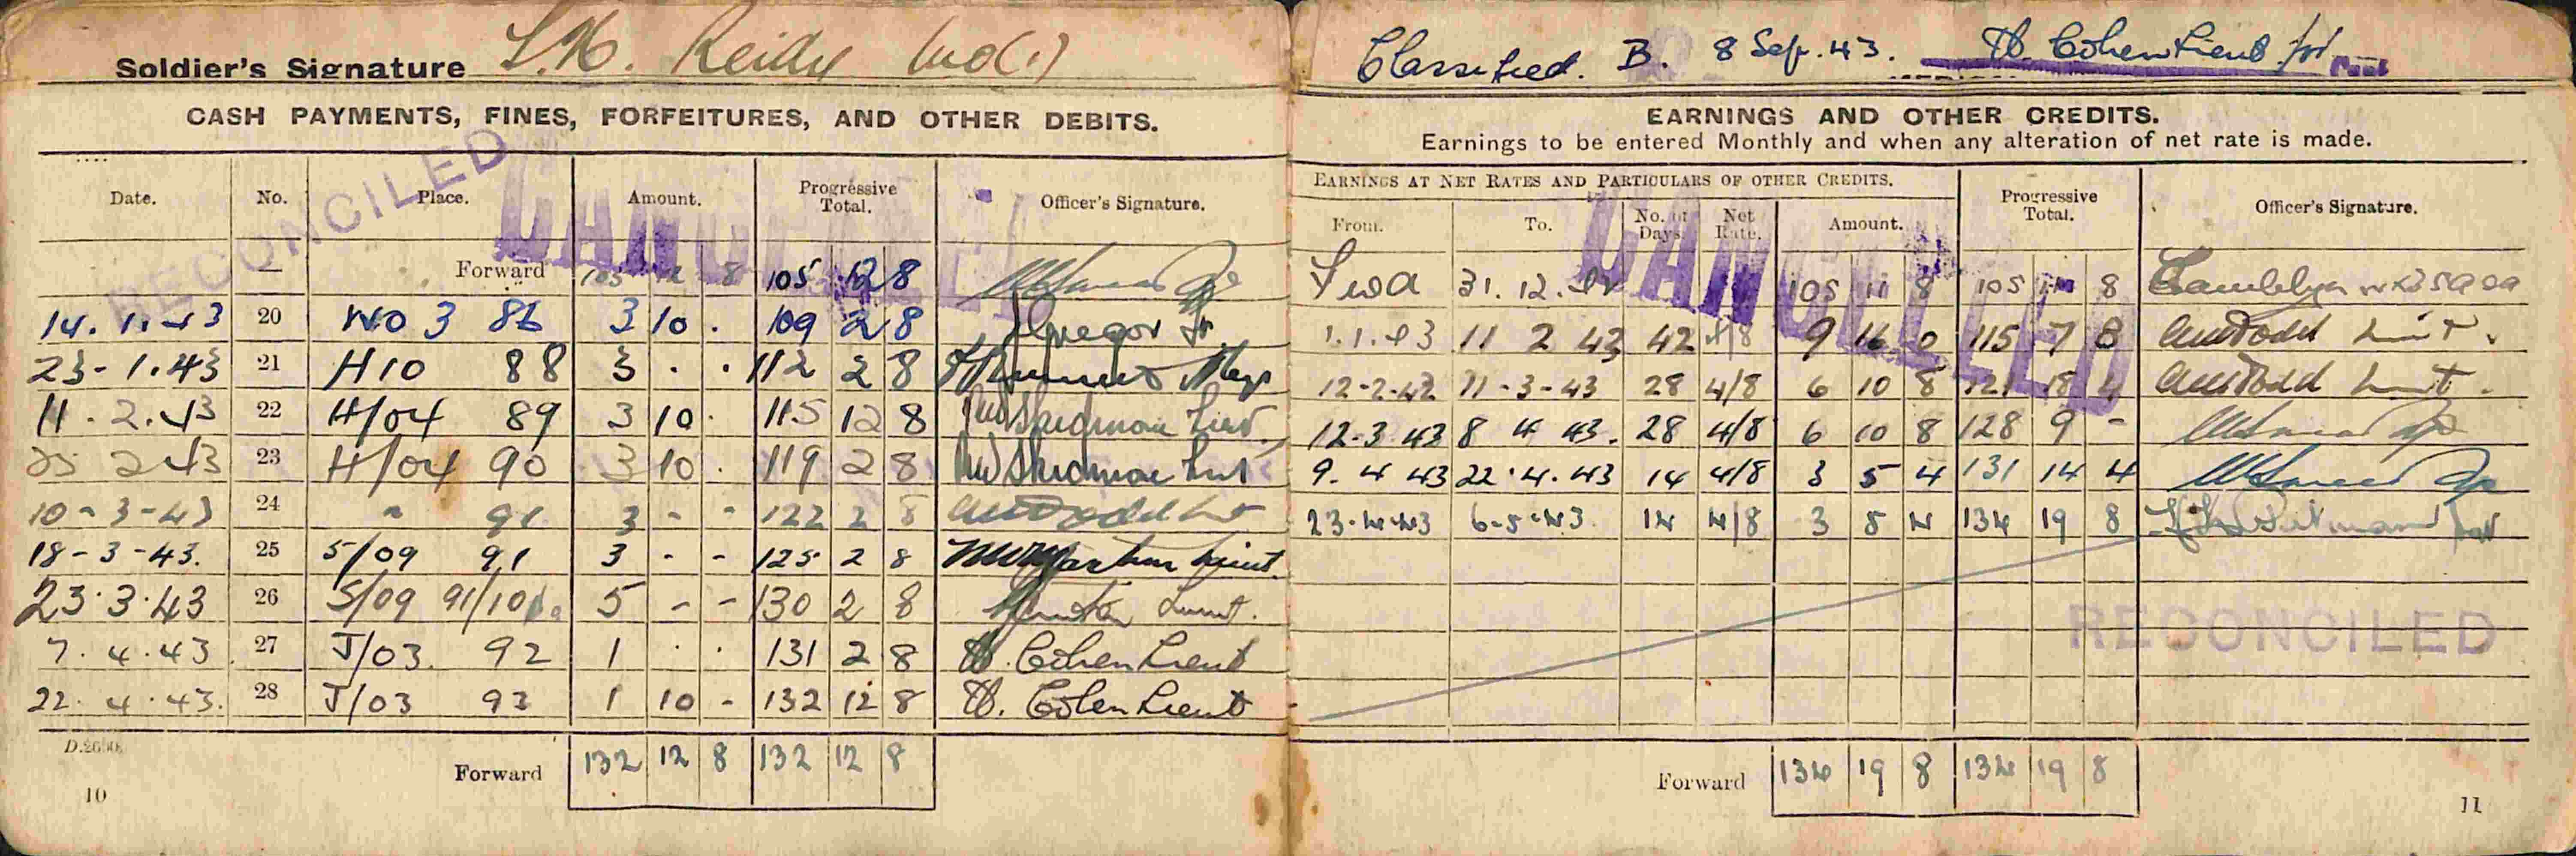 Soldier's Signature
CASH PAYMENTS, FINES, FORFEITURES, AND OTHER DEBITS.
RECONCILED
CANCELLED
Date. No. Place. Amount. Progressive Total. Officer's Signature.
— Forward 105 12 8 105 12 8
14. 1. 43 20 No 3 86 3 10 . 109 2 8
23-1.43 21 H10 88 3 . . 112 2 8
11. 2. 43 22 H/04 89 3 10 . 115 12 8
25 2 43 23 H/04 90 3 10 . 119 2 8
10-3-43 24 " 91 3 - - 122 2 8
18-3-43. 25 5/09 91 3 - - 125 2 8 Lieut.
23.3.43 26 S/09 91/10 5 - - 130 2 8
7. 4. 43 27 J/03. 92 1 . . 131 2 8 Cohen Lieut
22. 4. 43. 28 J/03 93 1 10 - 132 12 8 Cohen Lieut
Forward 132 12 8 132 12 8
10
Classified. B. 8 Sep. 43. Cohen Lieut
EARNINGS AND OTHER CREDITS.
Earnings to be entered Monthly and when any alteration of net rate is made.
EARNINGS AT NET RATES AND PARTICULARS OF OTHER CREDITS.
From. To. No. of Days. Net Rate. Amount. Progressive Total. Officer's Signature.
CANCELLED
Fwd 31. 12. 42 105 11 8 105 11 8
1.1.43 11 2 43 42 4/8 9 16 0 115 7 8 Todd Lieut.
12-2-43 11-3-43 28 4/8 6 10 8 121 18 4 Todd Lieut.
12-3 43 8 4 43. 28 4/8 6 10 8 128 9 -
9. 4 43 22.4.43 14 4/8 3 5 4 131 14 4
23.4.43 6-5-43 14 4/8 3 5 4 134 19 8
RECONCILED
Forward 134 19 8 134 19 8
11